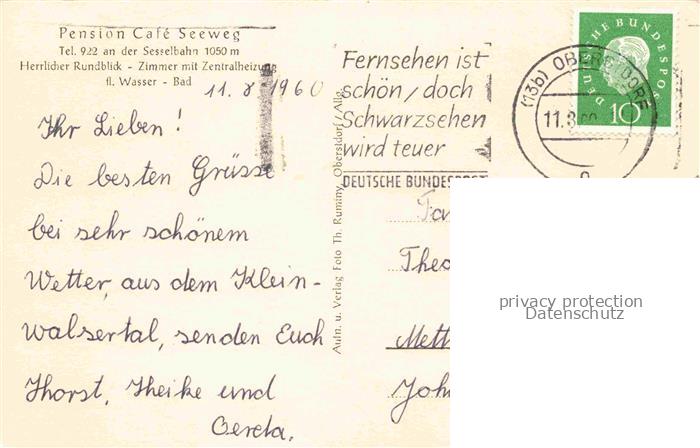 Pension Café Seeweg
Tel. 922 an der Sesselbahn 1050 m
Herrlicher Rundblick - Zimmer mit Zentralheizung
fl. Wasser - Bad
11. 8 1960
Ihr Lieben!
Die besten Grüsse
bei sehr schönem
Wetter, aus dem Klein-
walsertal, senden Euch
Horst, Heike und
Gerda.
Autn. u. Verlag Foto Th. Ruminy, Oberstdorf/Allg.
Fernsehen ist
schön/doch
Schwarzsehen
wird teuer
DEUTSCHE BUNDESPOST
(13b) OBERSTDORF
11.8.60
DEUTSCHE BUNDESPOST
10
Fa
Theo
Mett
Joh
privacy protection
Datenschutz